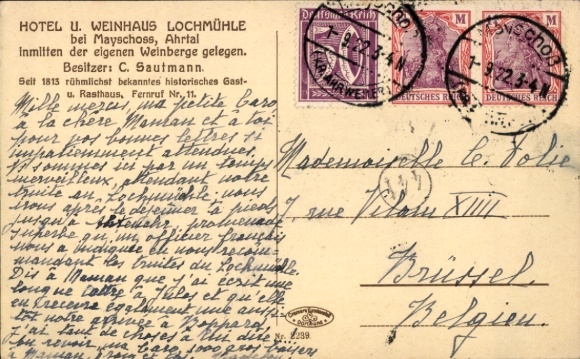 HOTEL U. WEINHAUS LOCHMÜHLE
bei Mayschoss, Ahrtal
inmitten der eigenen Weinberge gelegen.
Besitzer: C. Sautmann.
Seit 1813 rühmlichst bekanntes historisches Gast-
u. Rasthaus, Fernruf Nr. 11.
Mille mercis, ma petite Caro
à la chère Maman et à toi
pour vos bonnes lettres si
impatiemment attendues.
sommes ici par un temps
merveilleux, attendant notre
truite au Lochmühle. nous
irons après le déjeuner à pied
jusqu'à promenade
superbe qu'un officier français
nous a indiquée en nous recom-
mandant les truites du Lochmühle.
Dis à Maman que j'ai écrit une
longue lettre à Jules et qu'elle
en recevra également une aussi-
tôt notre arrivée à Boppard.
J'ai tant de choses à lui dire.
revoir ma Caro, 1000 gros baisers
à Maman
Deutsches Reich
M
DEUTSCHES REICH
M
DEUTSCHES REICH
Mayschoß
7-9.22.3-4N
Mayschoß
7-9.22.3-4N
Mademoiselle
7 rue XIIII
Brüssel
Belgien.
Nr. 2239.